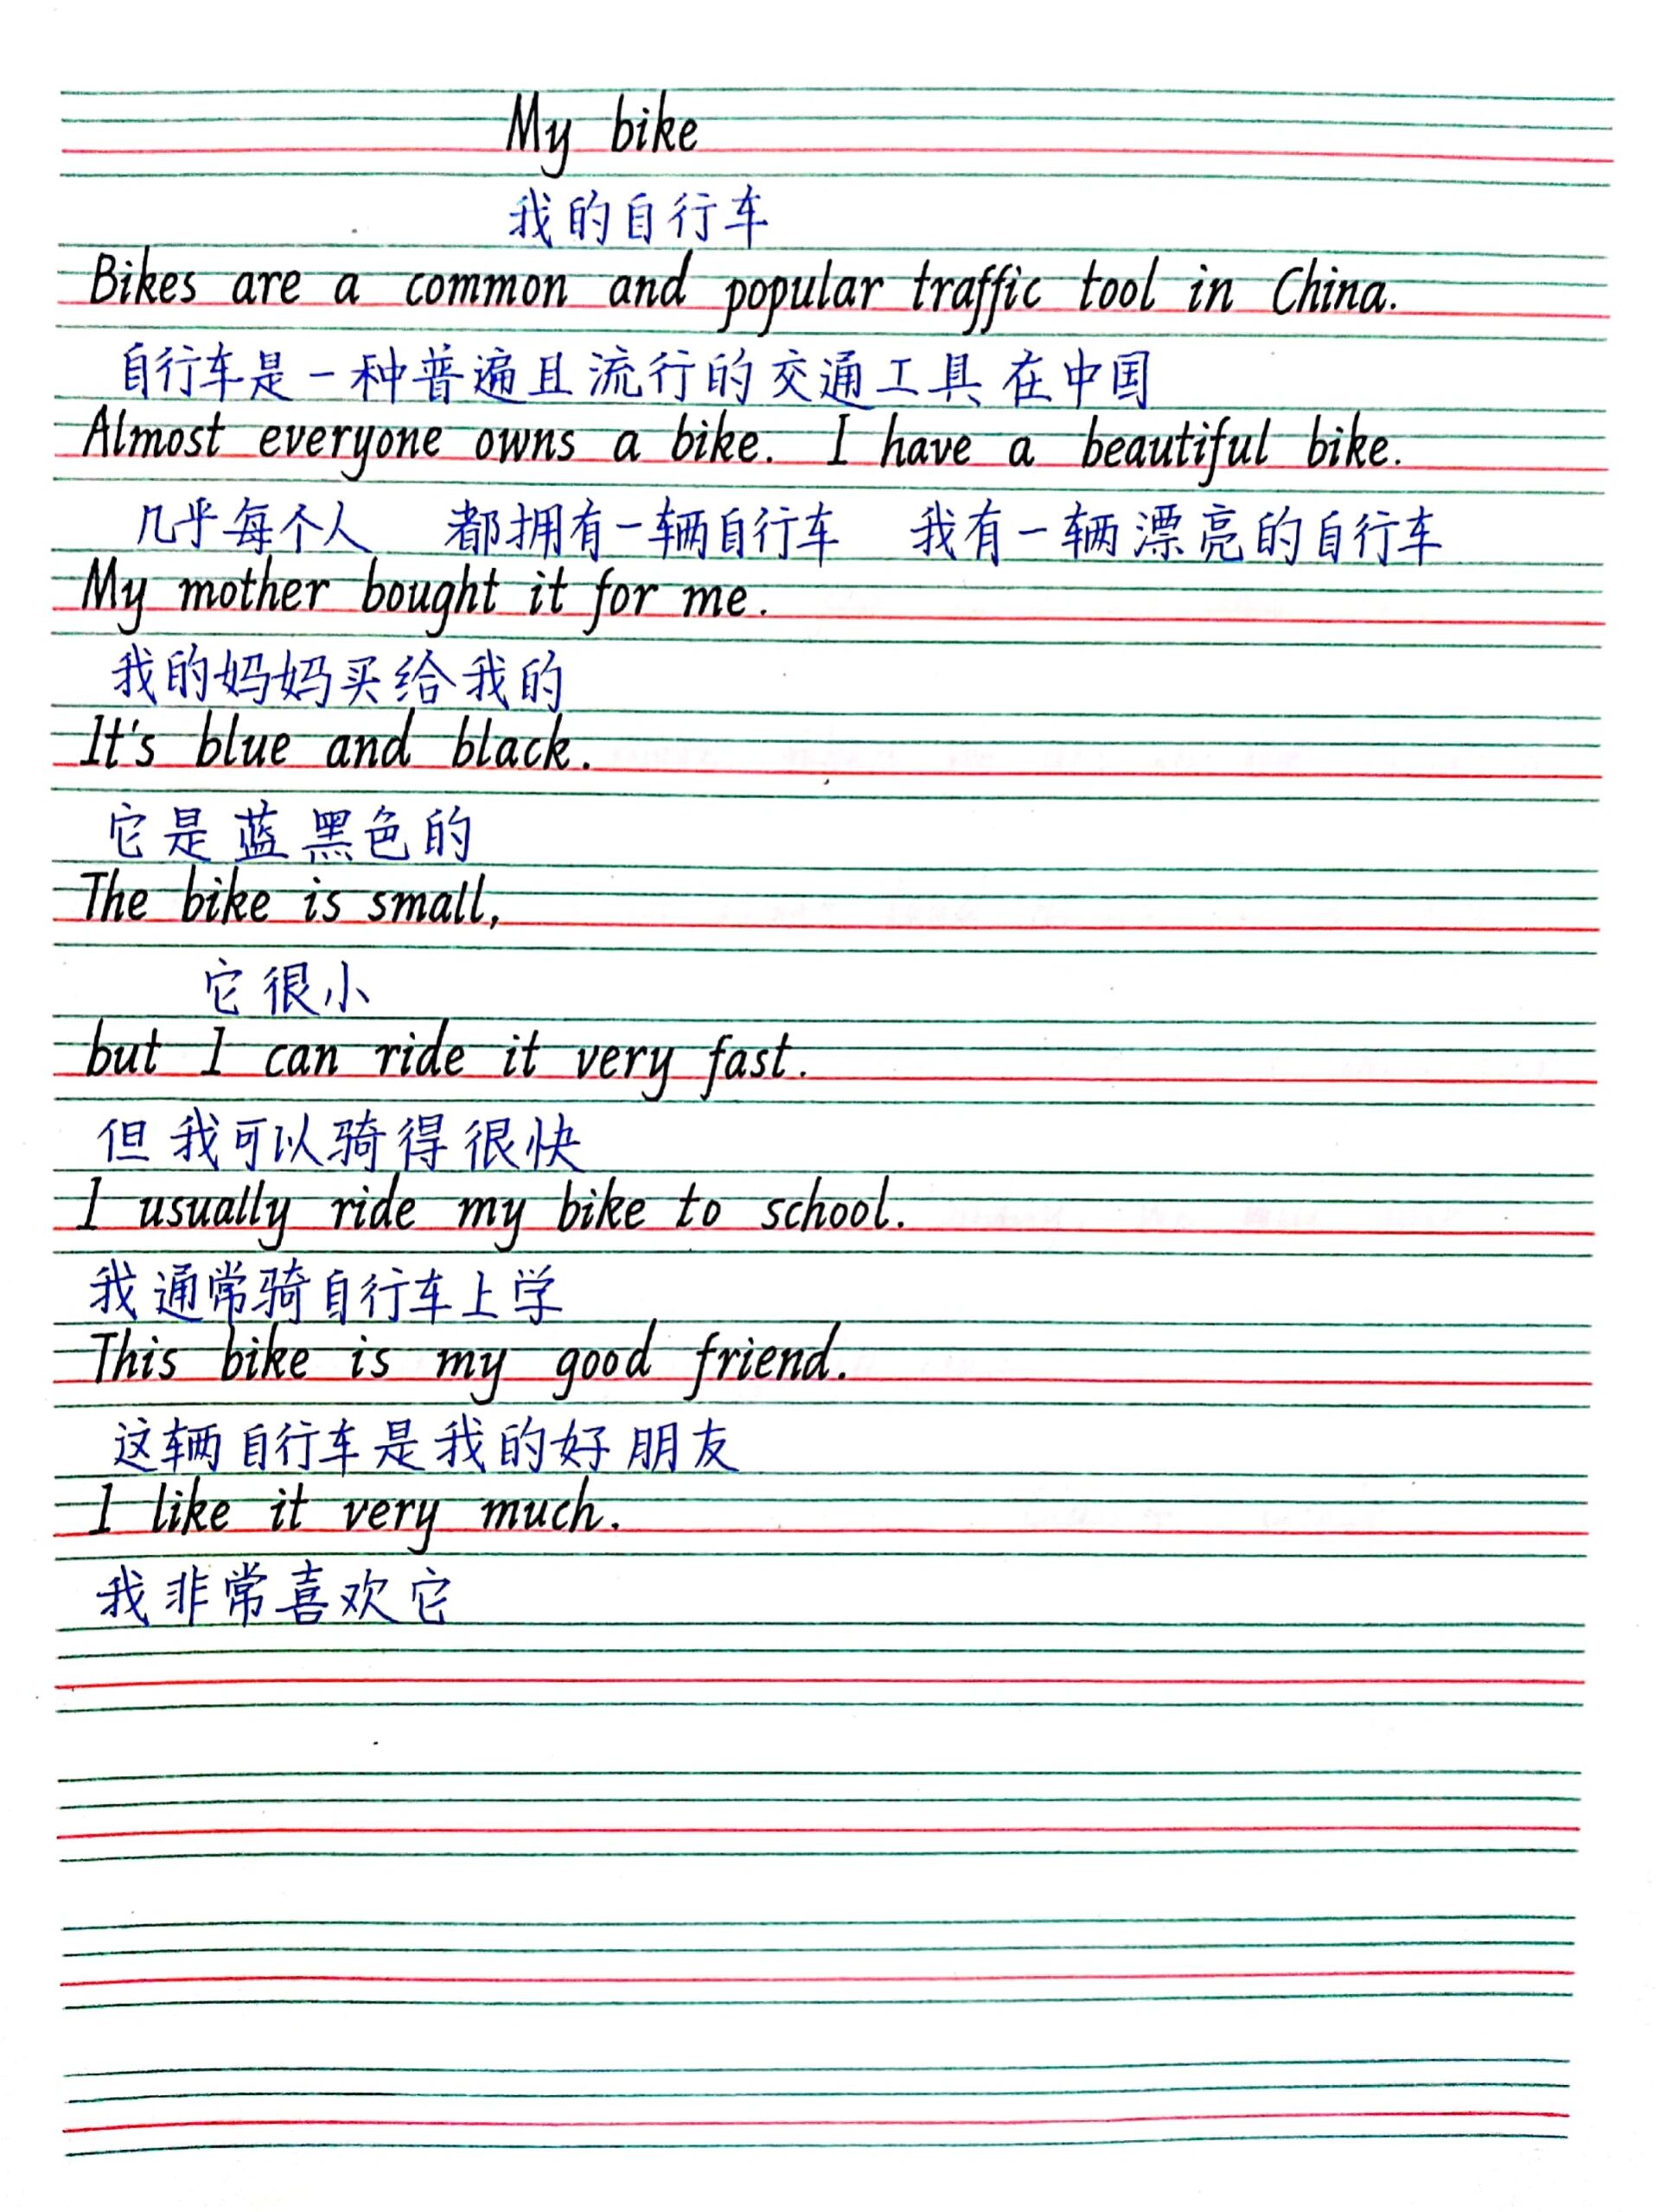 My bike
我的自行车
Bikes are a common and popular traffic tool in China.
自行车是一种普遍且流行的交通工具在中国
Almost everyone owns a bike. I have a beautiful bike.
几乎每个人 都拥有一辆自行车 我有一辆漂亮的自行车
My mother bought it for me.
我的妈妈买给我的
It's blue and black.
它是蓝黑色的
The bike is small,
它很小
but I can ride it very fast.
但我可以骑得很快
I usually ride my bike to school.
我通常骑自行车上学
This bike is my good friend.
这辆自行车是我的好朋友
I like it very much.
我非常喜欢它